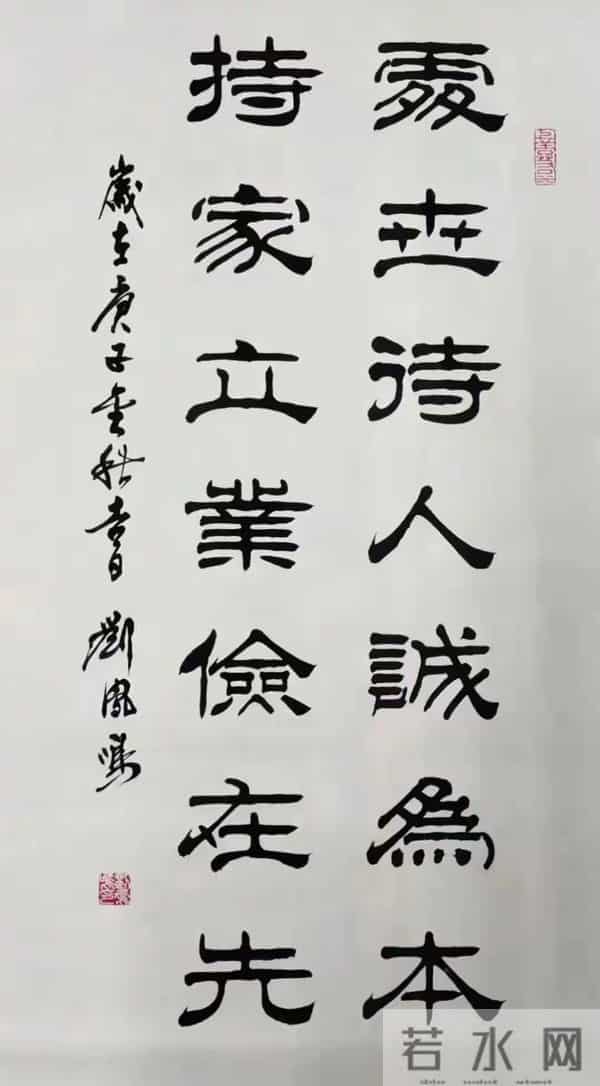 處世待人誠為本
持家立業儉在先
歲在庚子金秋書 劉鳳鳴
若水网